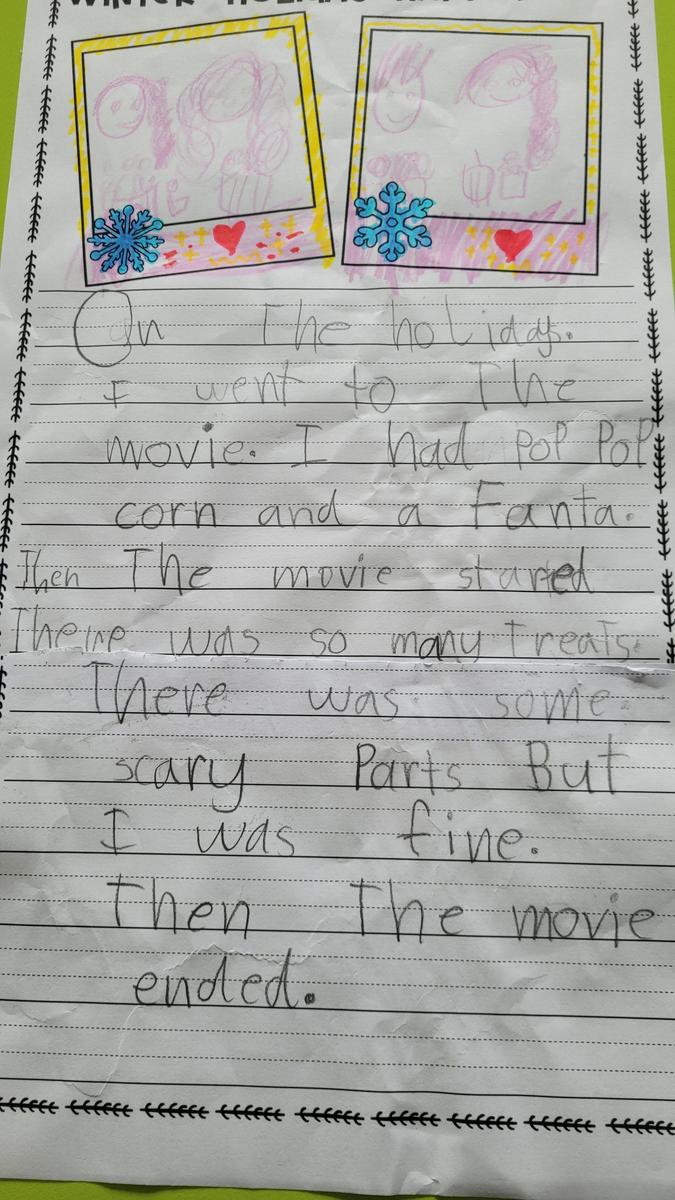 WINTER HOLIDAY
On The holiday.
I went to The
movie. I had PoP PoP
corn and a Fanta.
Then The movie started
There was so many Treats.
There was some
scary Parts But
I was fine.
Then The movie
ended.